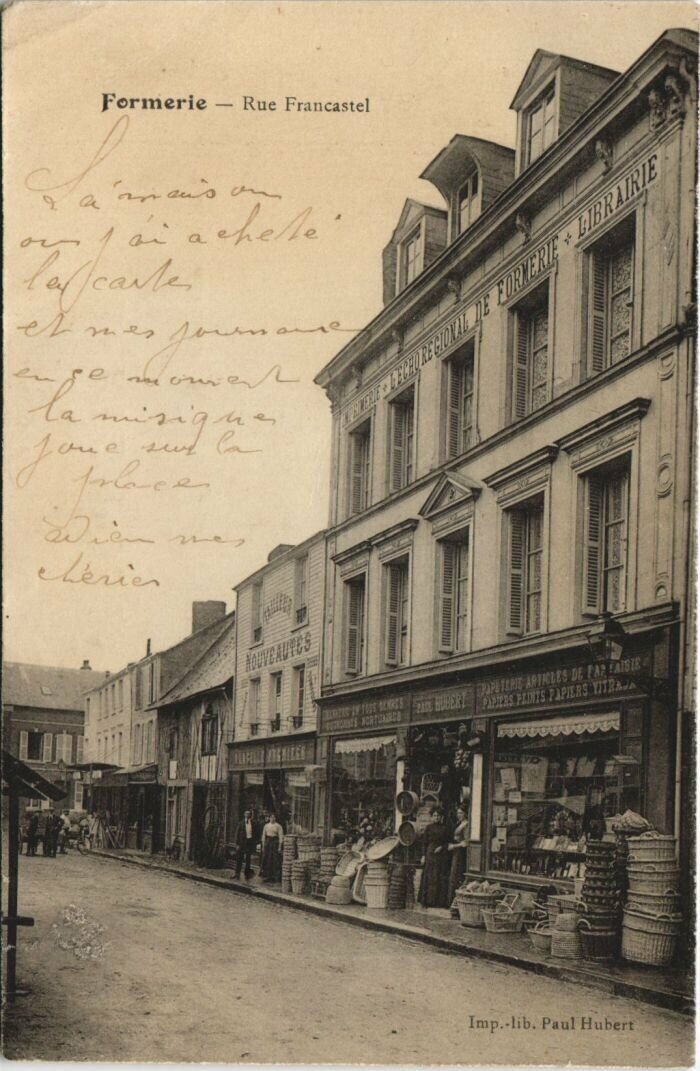 Formerie — Rue Francastel
La maison
ou j'ai acheté
la carte
et mes journaux
en ce moment
la musique
joue sur la
place
Adieu mes
chéries
IMPRIMERIE ✦ L'ECHO REGIONAL DE FORMERIE ✦ LIBRAIRIE
TAILLEUR
NOUVEAUTÉS
PAUL HUBERT
PAPETERIE ARTICLES DE FANTAISIE
PAPIERS PEINTS PAPIERS VITRAUX
Imp.-lib. Paul Hubert